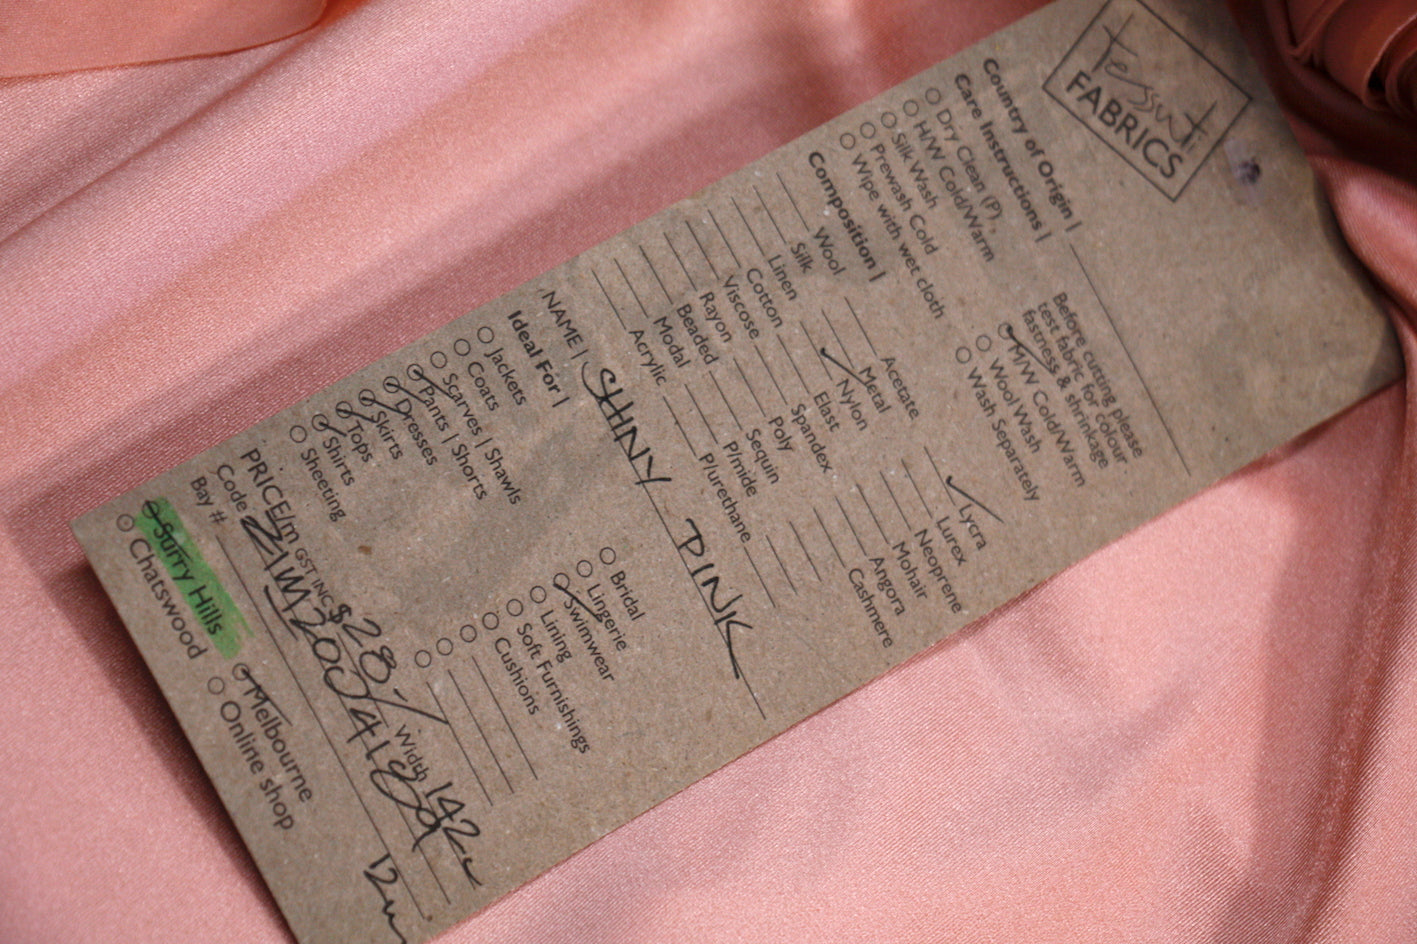 Tessuti
FABRICS
Country of Origin |
Care Instructions |
Before cutting please
test fabric for colour
fastness & shrinkage
Dry Clean (P),
H/W Cold/Warm
Silk Wash
Prewash Cold
Wipe with wet cloth
M/W Cold/Warm
Wool Wash
Wash Separately
Composition |
Wool
Silk
Linen
Cotton
Viscose
Rayon
Beaded
Modal
Acrylic
Acetate
Metal
Nylon
Elast
Spandex
Poly
Sequin
P/mide
P/urethane
Lycra
Lurex
Neoprene
Mohair
Angora
Cashmere
NAME | SHINY PINK
Ideal For |
Jackets
Coats
Scarves | Shawls
Pants | Shorts
Dresses
Skirts
Tops
Shirts
Sheeting
Bridal
Lingerie
Swimwear
Lining
Soft Furnishings
Cushions
PRICE/m GST INC $28/ Width 142
Code
Bay #
Surry Hills
Chatswood
Melbourne
Online shop